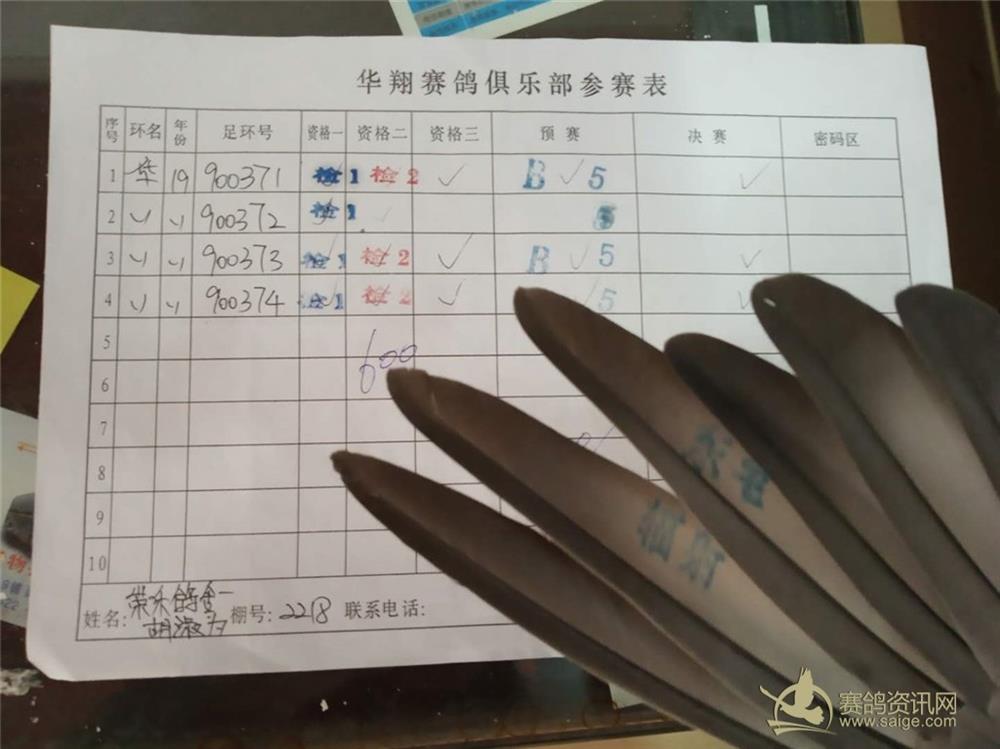 华翔赛鸽俱乐部参赛表
序号 环名 年份 足环号 资格一 资格二 资格三 预赛 决赛 密码区
1 华 19 900371 检1 检2 ✓ B ✓ 5 ✓
2 〃 〃 900372 检1 5
3 〃 〃 900373 检1 检2 ✓ B ✓ 5 ✓
4 〃 〃 900374 检1 检2 ✓ ✓ 5 ✓
5
6 600
7
8
9
10
姓名: 胡淑 棚号: 2218 联系电话:
赛鸽资讯网
www.saige.com